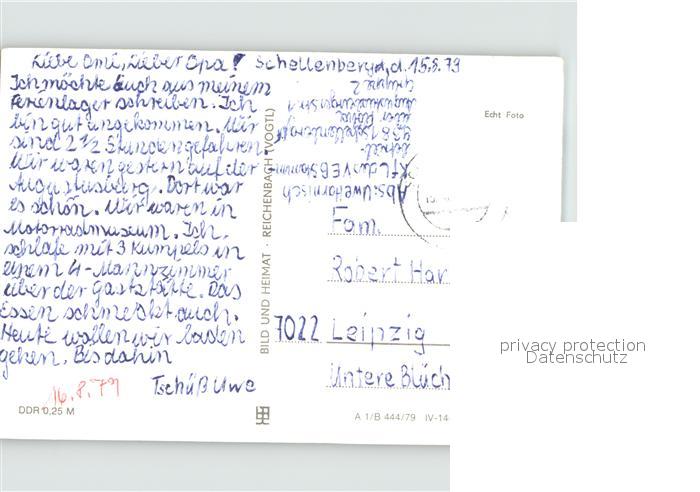 Liebe Omi, Lieber Opa! Schellenberg, d. 15.8.79
Ich möchte Euch aus meinem
Ferienlager schreiben. Ich
bin gut angekommen. Wir
sind 2 1/2 Stunden gefahren
Wir waren gestern auf der
Augustusburg. Dort war
es schön. Wir waren in
Motorradmuseum. Ich
schlafe mit 3 Kumpels in
einem 4-Mannzimmer
über der Gaststätte. Das
Essen schmeckt auch.
Heute wollen wir baden
gehen. Bis dahin
Tschüß Uwe
16.8.79
DDR 0,25 M
BILD UND HEIMAT · REICHENBACH (VOGTL)
Echt Foto
Abs: Uwe
Gruppe 2
Fam.
Robert Har
7022 Leipzig
Untere Blüch
A 1/B 444/79 IV-14
privacy protection
Datenschutz